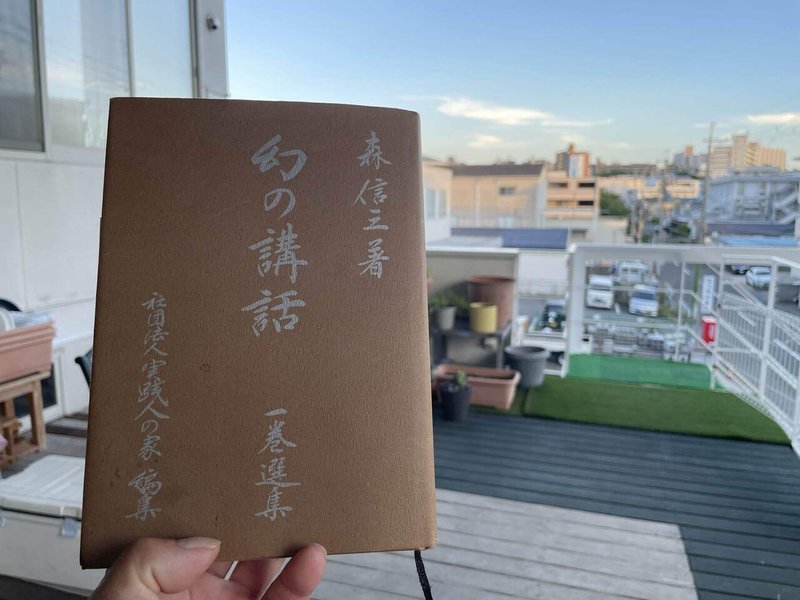 森信三著
幻の講話
一巻選集
社団法人実践人の家 編集